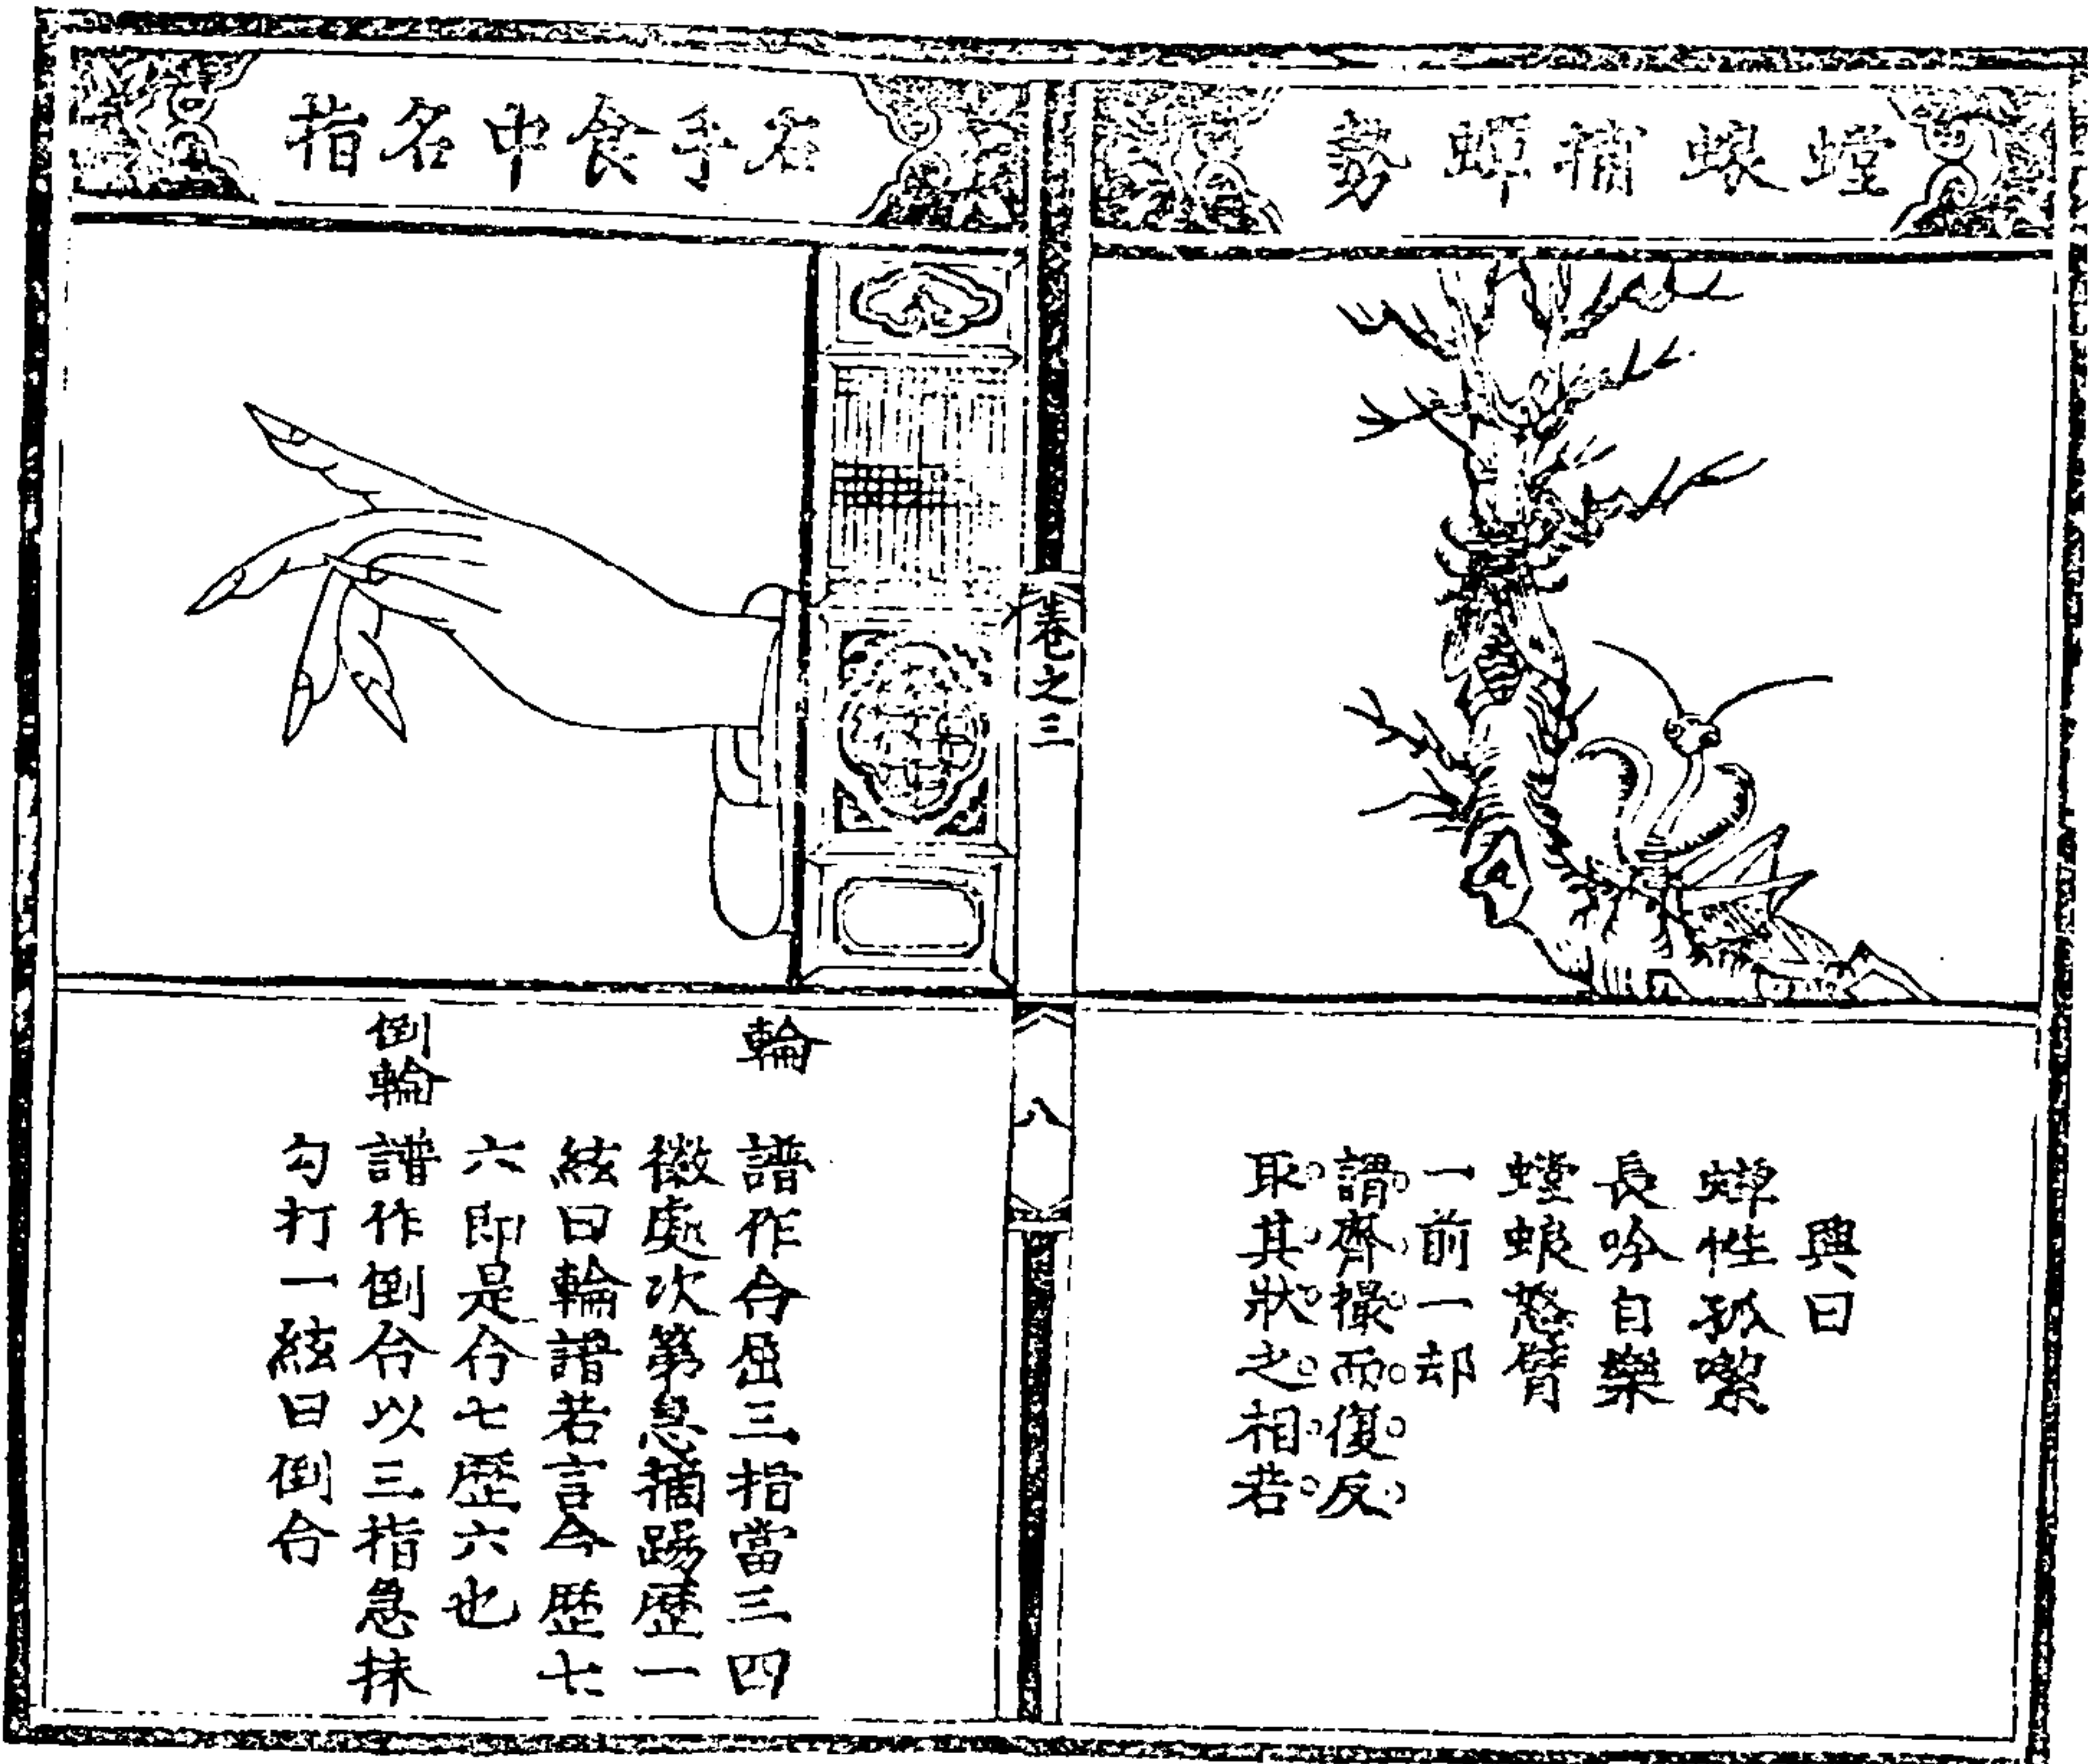 螳蜋捕蟬勢
興曰
蟬性孤潔
長吟自樂
螳蜋怒臂
一前一却
謂齊撮而復反
取其狀之相若
卷之三
八
右手食中名指
輪
譜作合屈三指當三四
徽處次第急摘踢歷一
絃曰輪譜若言今歷七
六即是合七歷六也
倒輪
譜作倒合以三指急抹
勾打一絃曰倒合